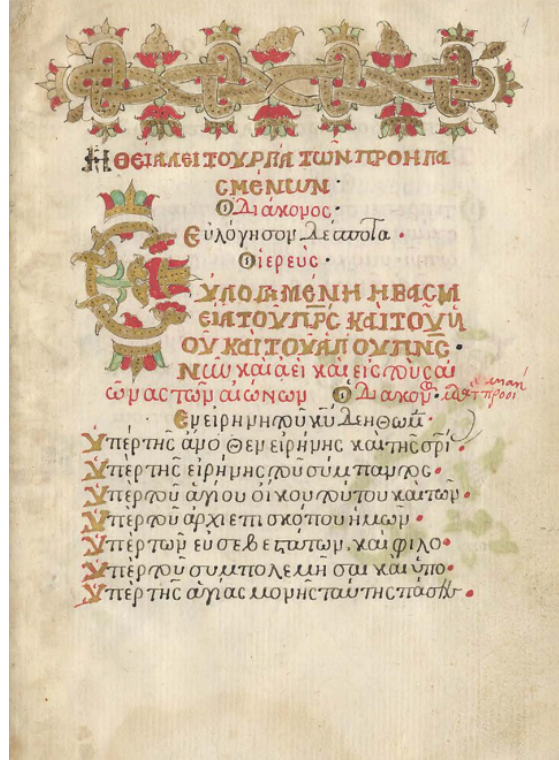 Ἡ ΘΕΊΑ ΛΕΙΤΟΥΡΓΊΑ ΤΩ͂Ν ΠΡΟΗΓΙΑ
ΣΜΈΝΩΝ·
Ὁ Διάκονος·
Εὐλόγησον Δέσποτα·
Ὁ ἱερεὺς·
ΕΥΛΟΓΗΜΈΝΗ Ἡ ΒΑΣΙΛ
ΕΊΑ ΤΟΥ͂ ΠΡ̅Σ ΚΑῚ ΤΟΥ͂ ΥἹ
ΟΥ͂ ΚΑῚ ΤΟΥ͂ ἉΓΊΟΥ ΠΝ̅Σ·
Νῦν καὶ ἀεὶ καὶ εἰς τοὺς αἰ
ῶνας τῶν αἰώνων Ὁ Διάκον·
Ἐν εἰρήνη τοῦ κῦ Δεηθῶμ
Ὑπὲρ τῆς ἄνοθεν εἰρήνης καὶ τῆς σρί
Ὑπὲρ τῆς εἰρήνης τοῦ σύμπαντος·
Ὑπὲρ τοῦ ἁγίου οἴκου τούτου καὶ τῶν·
Ὑπὲρ τοῦ ἀρχιεπισκόπου ἡμῶν·
Ὑπὲρ τῶν εὐσεβεστάτων. καὶ φιλο·
Ὑπὲρ τοῦ συμπολεμῆσαι καὶ ὑπο·
Ὑπὲρ τῆς ἁγίας μονῆς ταύτης πάσης·